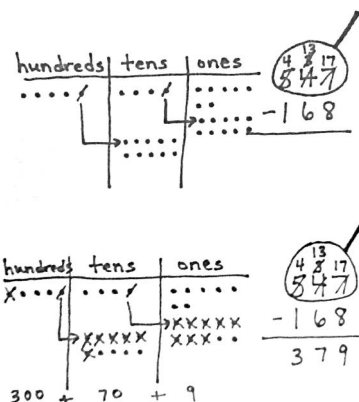 hundreds tens ones
13
4 3 17
5 4 7
-1 6 8
hundreds tens ones
13
4 3 17
5 4 7
-1 6 8
3 7 9
300 + 70 + 9